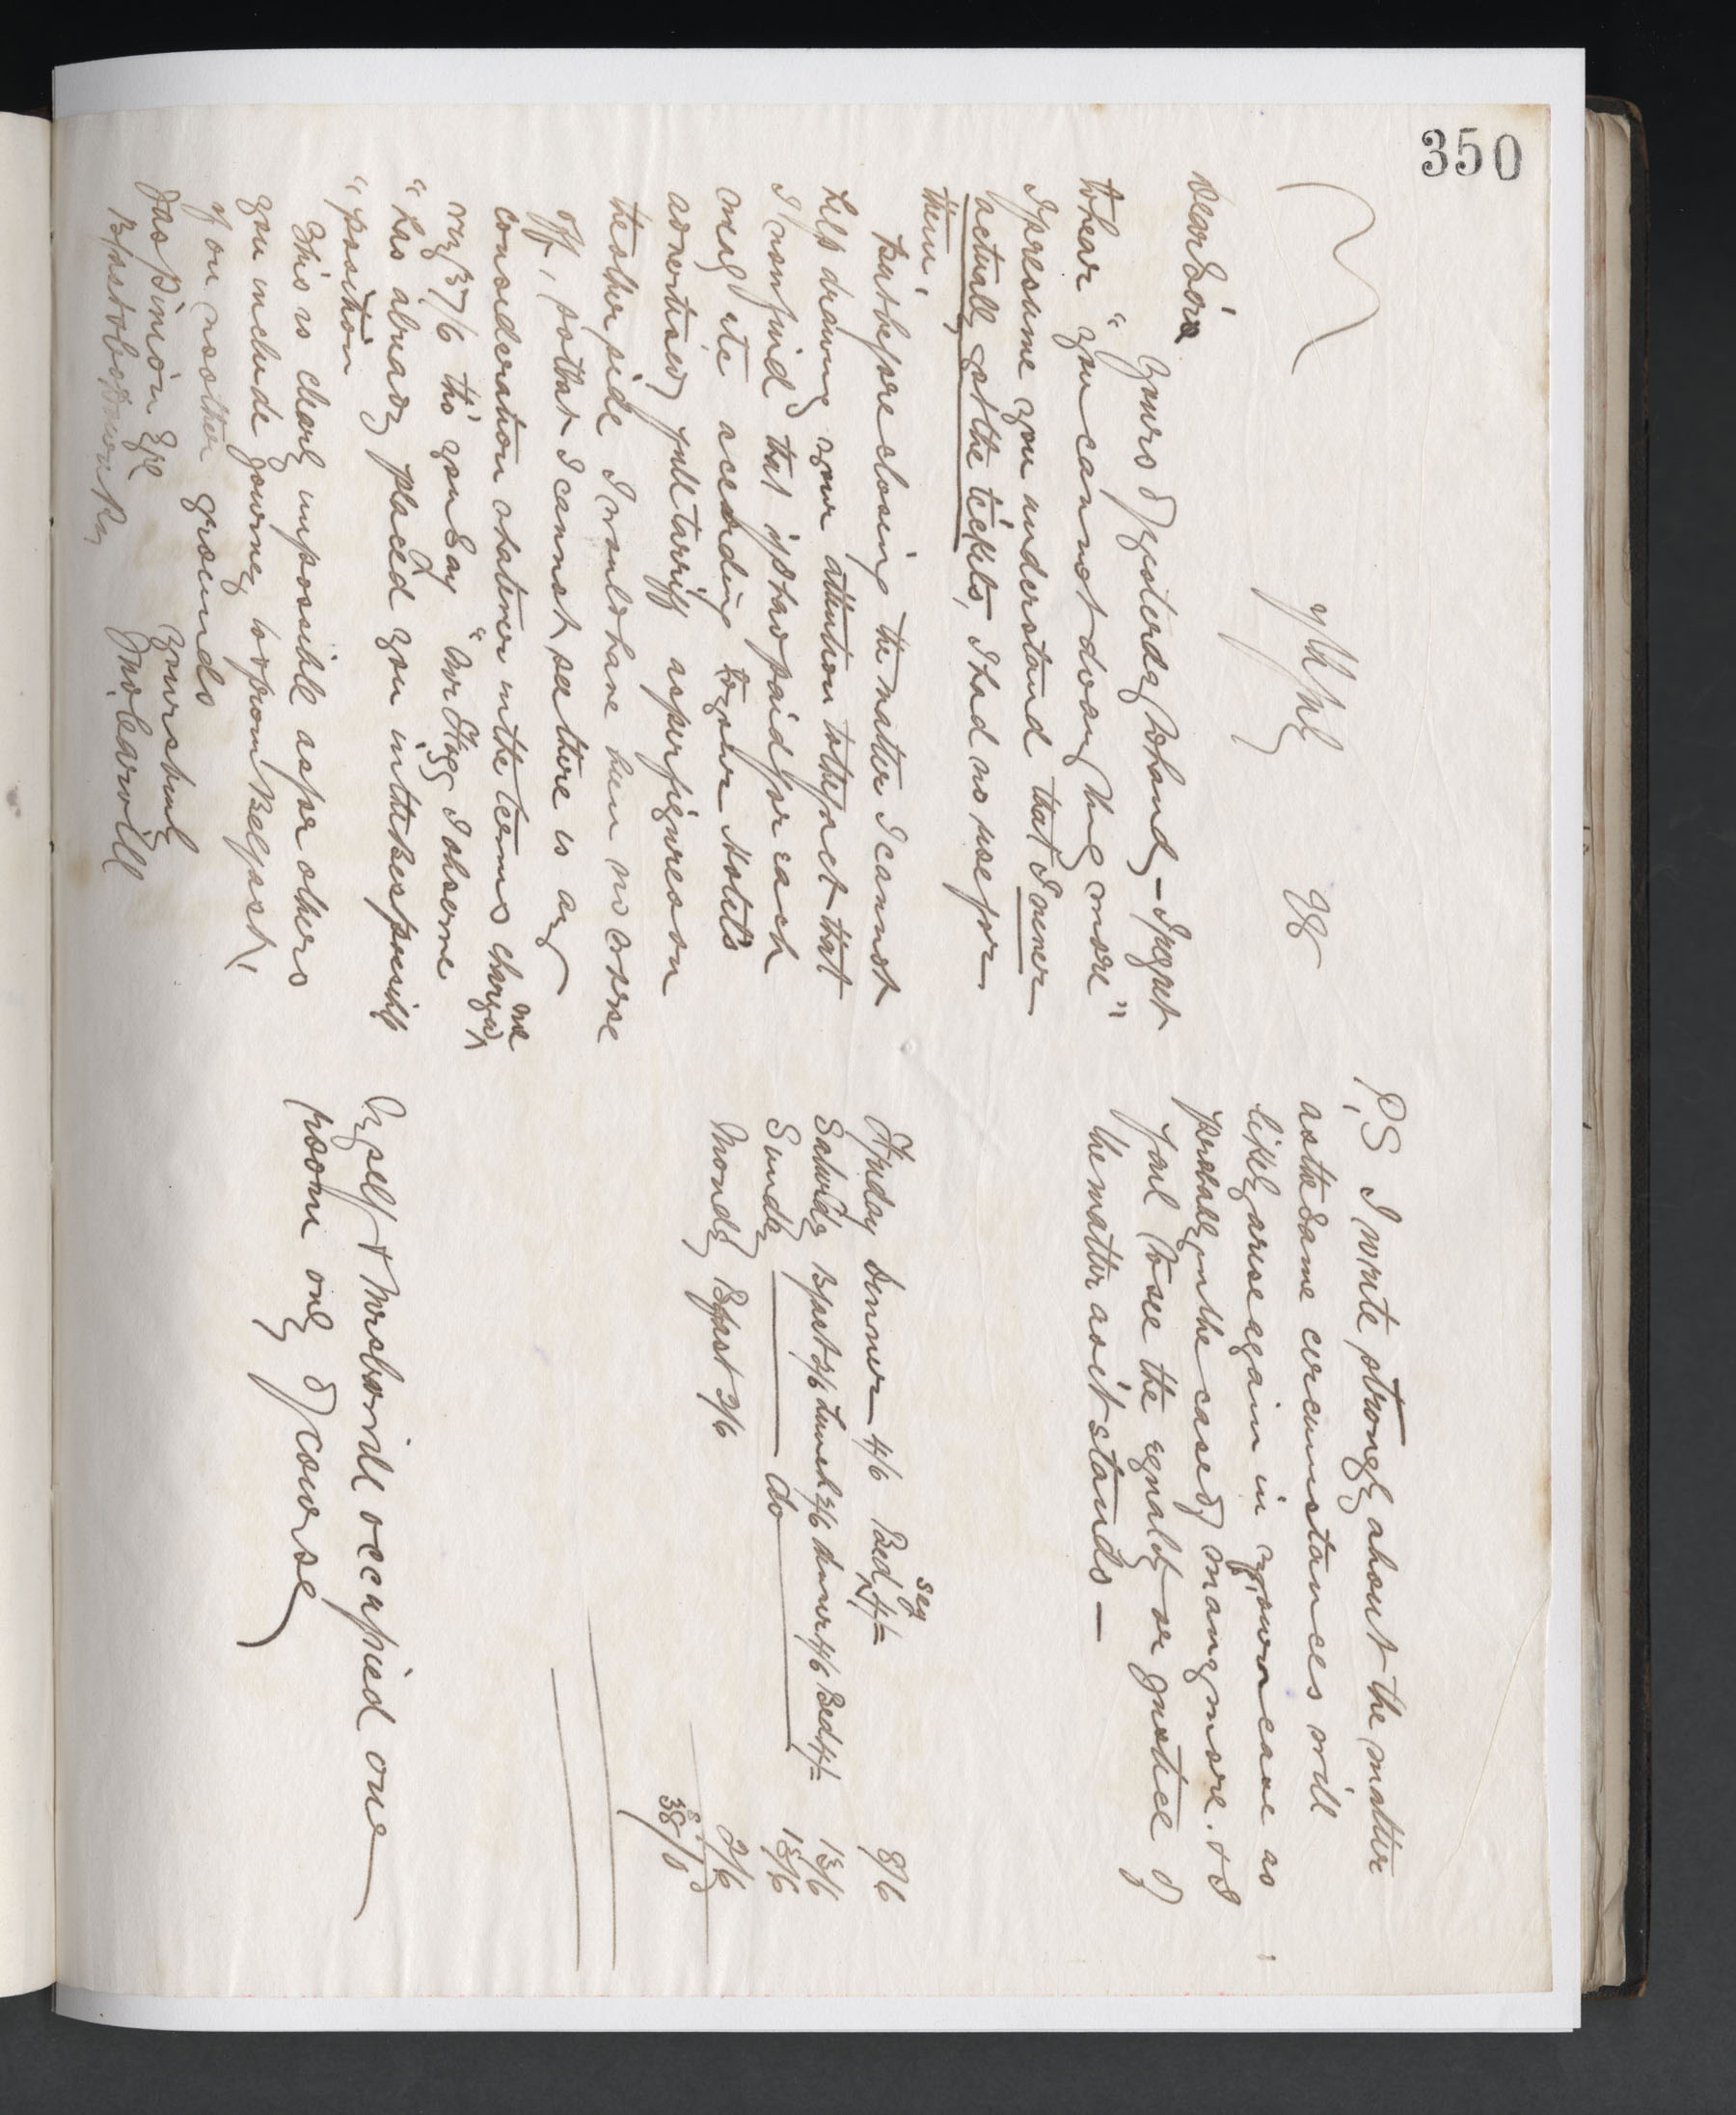 350
7th July 98
Dear Sir
Yours of yesterday to hand – I regret
to hear "you cannot do any thing more"
I presume you understand that I never
actually got the tickets, I had no use for
them.
but before closing the matter I cannot
help drawing your attention to the fact that
I now find that if I had paid for each
meal etc according to your Hotels
advertised full tarriff as per figures on
the other side I would have been no worse
off, so that I cannot see there is any
consideration whatever in the terms charged me
viz 37/6 tho' you say "Mr Stigg I observe
"has already placed you in the best possible
"position
This is clearly impossible as per others
you include journey to & from Belfast,
if on no other grounds
Jas Pinion Esq
Yours truly
Jno Carvill
P.S I write strongly about the matter
as the same circumstances will
likely arise again in your case as
probably in the case of many more. & I
fail to see the equality or justice of
the matter as it stands –
Friday Dinner 4/6 Bed say 4/= 8/6
Saturday Bfast 2/6 Lunch 2/6 dinner 4/6 Bed 4/= 13/6
Sunday do 13/6
Monday Bfast 2/6 2/6
38/0
Myself & Mrs Carvill occupied one
room only of course